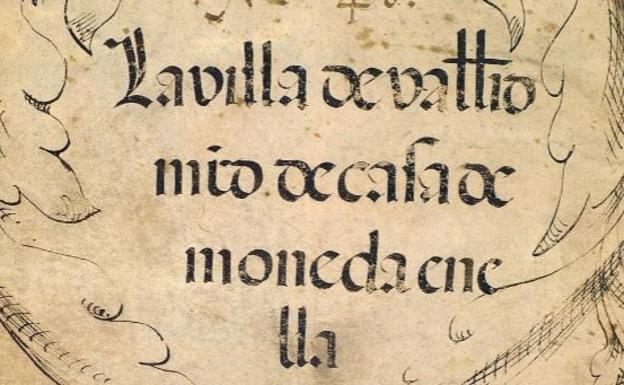 La villa de vallid
mrd. de casa de
moneda en e
lla